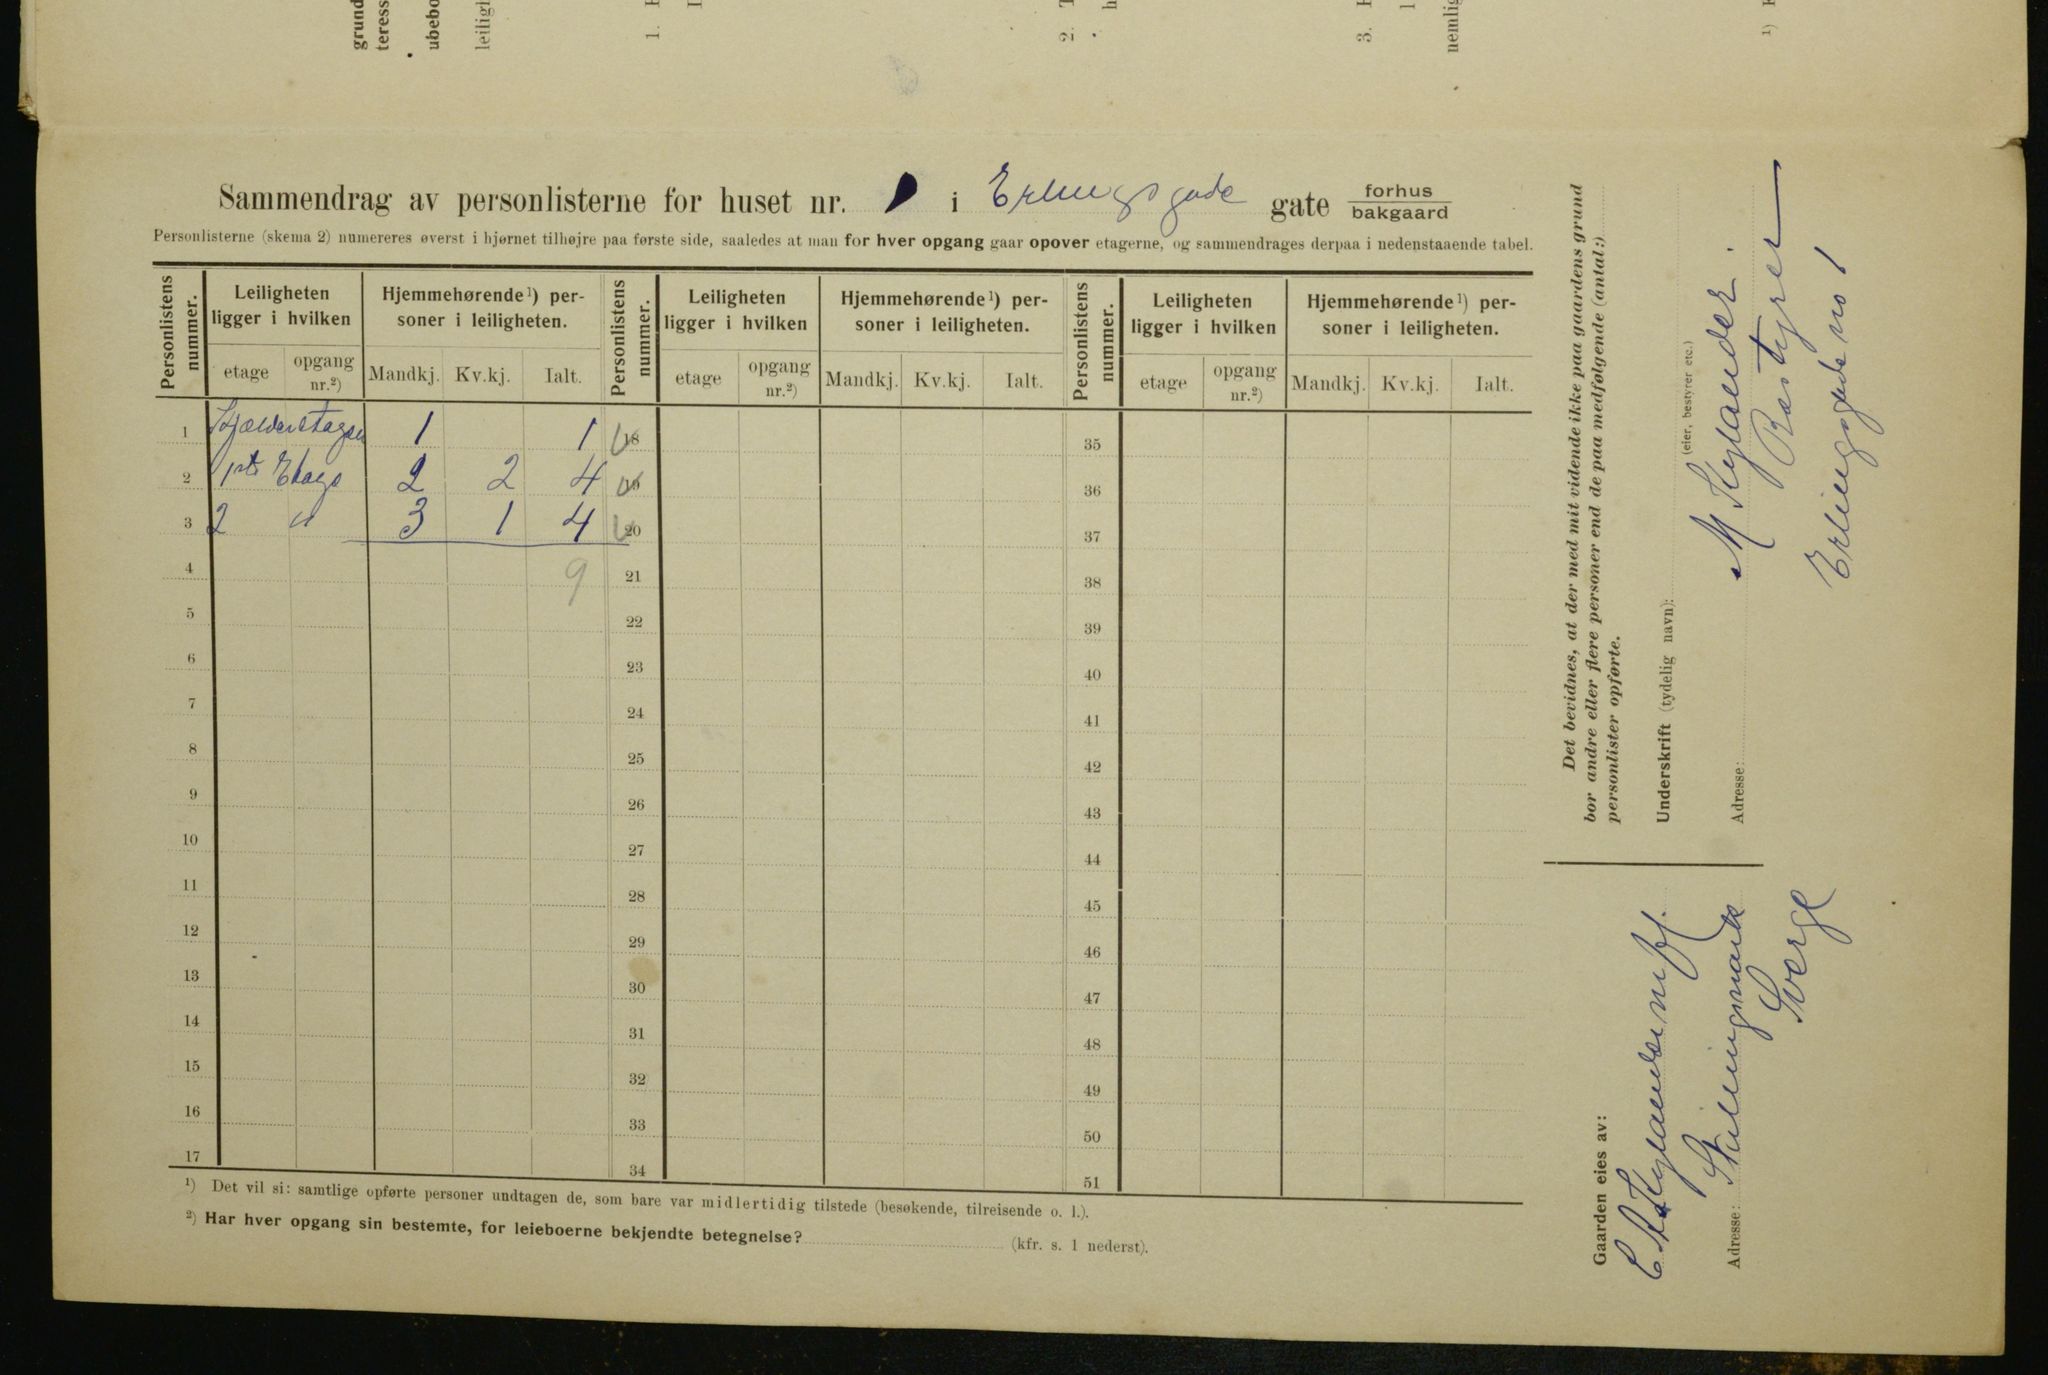 grund
teress
ubebo
leiligh
1.
2.
3.
nemlig
1)
Sammendrag av personlisterne for huset nr. i Erlingsgade gate forhus
bakgaard
Personlisterne (skema 2) numereres øverst i hjørnet tilhøjre paa første side, saaledes at man for hver opgang gaar opover etagerne, og sammendrages derpaa i nedenstaaende tabel.
Personlistens nummer. Leiligheten ligger i hvilken Hjemmehørende 1) personer i leiligheten. Personlistens nummer. Leiligheten ligger i hvilken Hjemmehørende 1) personer i leiligheten. Personlistens nummer. Leiligheten ligger i hvilken Hjemmehørende 1) personer i leiligheten.
etage opgang nr.2) Mandkj. Kv.kj. Ialt. etage opgang nr.2) Mandkj. Kv.kj. Ialt. etage opgang nr.2) Mandkj. Kv.kj. Ialt.
1 Kjælderetagen 1 1 18 35
2 1ste Etage 2 2 4 19 36
3 2 " 3 1 4 20 37
4 9 21 38
5 22 39
6 23 40
7 24 41
8 25 42
9 26 43
10 27 44
11 28 45
12 29 46
13 30 47
14 31 48
15 32 49
16 33 50
17 34 51
1) Det vil si: samtlige opførte personer undtagen de, som bare var midlertidig tilstede (besøkende, tilreisende o. l.).
2) Har hver opgang sin bestemte, for leieboerne bekjendte betegnelse? (kfr. s. 1 nederst).
Det bevidnes, at der med mit vidende ikke paa gaardens grund
bor andre eller flere personer end de paa medfølgende (antal:)
personlister opførte.
Underskrift (tydelig navn): M Kylander.
(eier, bestyrer etc.)
Bestyrer
Adresse: Erlingsgade no 1
Gaarden eies av:
C A Kylander
Adresse: Stallingsmark
Sverge